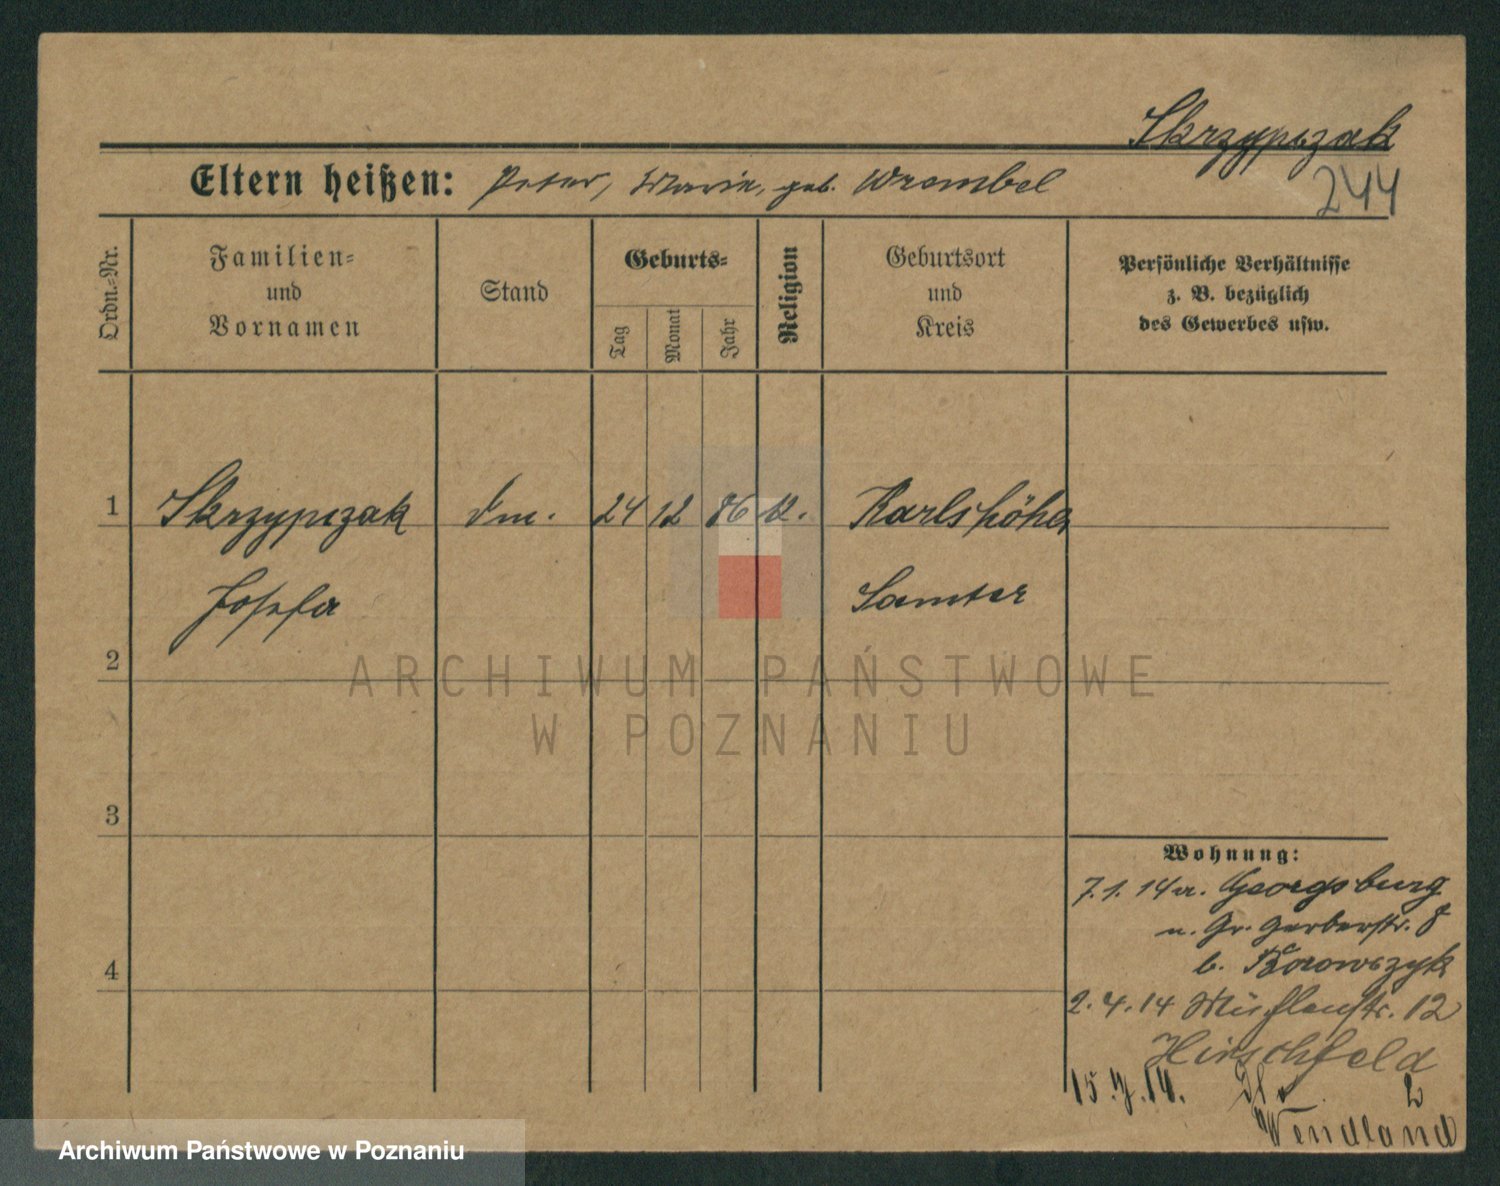 Skrzypczak
244
Eltern heißen: Peter, Marie, geb. Wrembel
Ordn.-Nr.
Familien-
und
Vornamen
Stand
Geburts-
Tag
Monat
Jahr
Religion
Geburtsort
und
Kreis
Persönliche Verhältnisse
z. B. bezüglich
des Gewerbes usw.
1 Skrzypczak 24 12 86 Karlshöhe
Josefa Samter
2
ARCHIWUM PAŃSTWOWE
W POZNANIU
3
4
Wohnung:
7.1.14 a. Georgsburg
n. Gr. Gerberstr. 8
b. Borowczyk
2.4.14 Mühlenstr. 12
Hirschfeld
15. 14.
2
Wendland
Archiwum Państwowe w Poznaniu